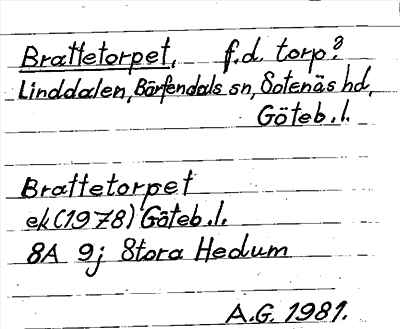 Brattetorpet, f.d. torp?
Linddalen, Bärfendals sn, Sotenäs hd,
Göteb.l.
Brattetorpet
ek(1978) Göteb.l.
8A 9j Stora Hedum
A.G. 1981.